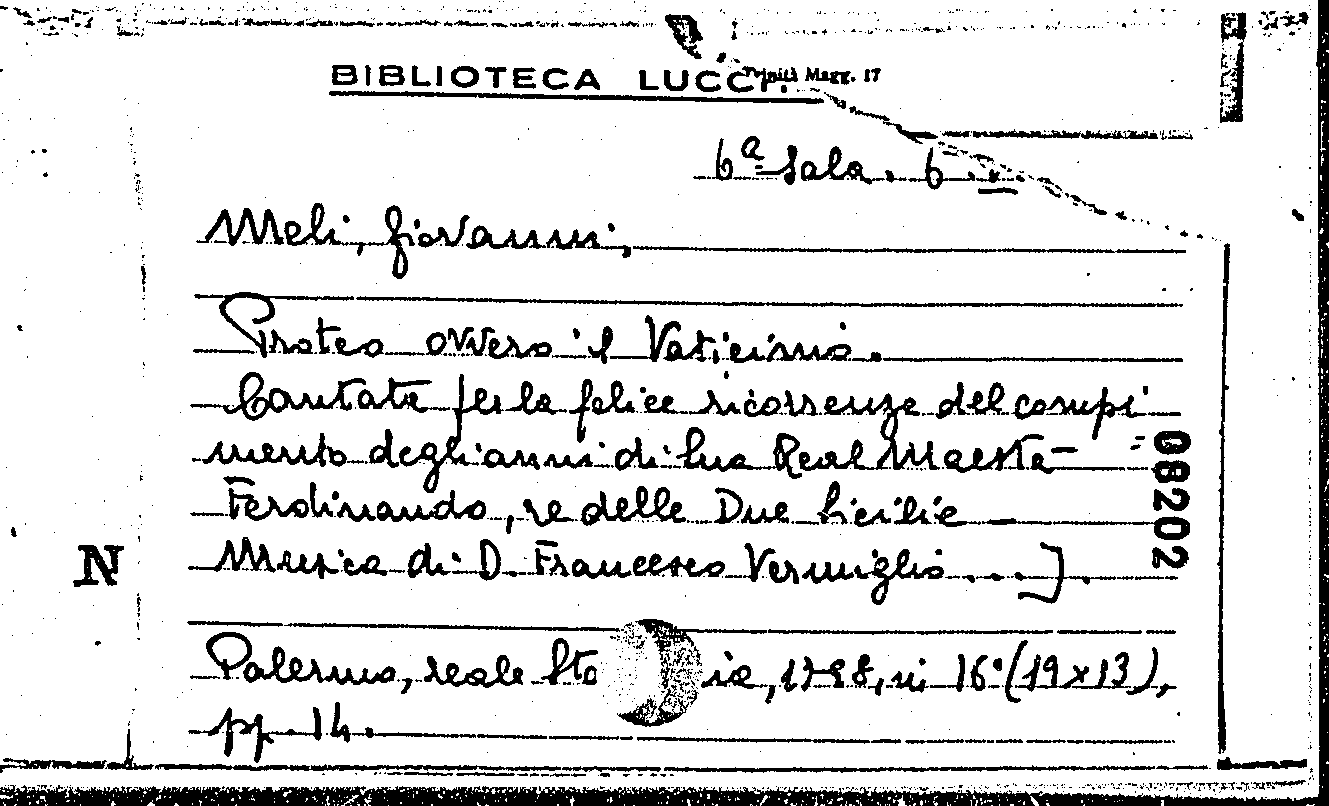 BIBLIOTECA LUCCHESI Trinità Magg. 17
6ª Sala. 6
Meli, Giovanni,
Proteo ovvero il Vaticinio.
Cantata per la felice ricorrenza del compi=
mento degli anni di Sua Real Maestà
Ferdinando, re delle Due Sicilie —
Musica di D. Francesco Vermiglio ...].
Palermo, reale Sta ria, 1798, in 16° (19x13),
pp. 14.
N
08202